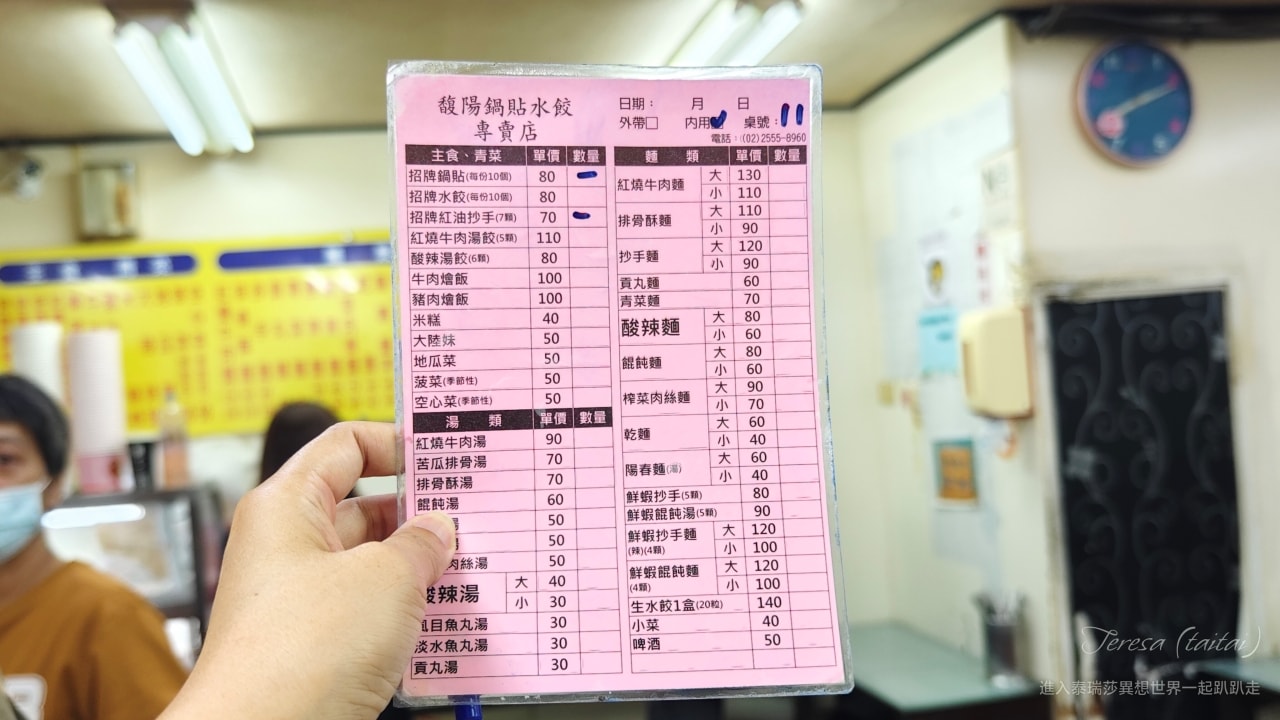 馥陽鍋貼水餃
專賣店
日期： 月 日
外帶□ 內用 桌號：11
電話：(02)2555-8960
主食、青菜 單價 數量
招牌鍋貼(每份10個) 80
招牌水餃(每份10個) 80
招牌紅油抄手(7顆) 70
紅燒牛肉湯餃(5顆) 110
酸辣湯餃(6顆) 80
牛肉燴飯 100
豬肉燴飯 100
米糕 40
大陸妹 50
地瓜菜 50
菠菜(季節性) 50
空心菜(季節性) 50
湯 類 單價 數量
紅燒牛肉湯 90
苦瓜排骨湯 70
排骨酥湯 70
餛飩湯 60
湯 50
50
肉絲湯 50
酸辣湯 大 40
小 30
虱目魚丸湯 30
淡水魚丸湯 30
貢丸湯 30
麵 類 單價 數量
紅燒牛肉麵 大 130
小 110
排骨酥麵 大 110
小 90
抄手麵 大 120
小 90
貢丸麵 60
青菜麵 70
酸辣麵 大 80
小 60
餛飩麵 大 80
小 60
榨菜肉絲麵 大 90
小 70
乾麵 大 60
小 40
陽春麵(湯) 大 60
小 40
鮮蝦抄手(5顆) 80
鮮蝦餛飩湯(5顆) 90
鮮蝦抄手麵 大 120
(辣)(4顆) 小 100
鮮蝦餛飩麵 大 120
(4顆) 小 100
生水餃1盒(20粒) 140
小菜 40
啤酒 50
Teresa (taitai)
進入泰瑞莎異想世界一起趴趴走